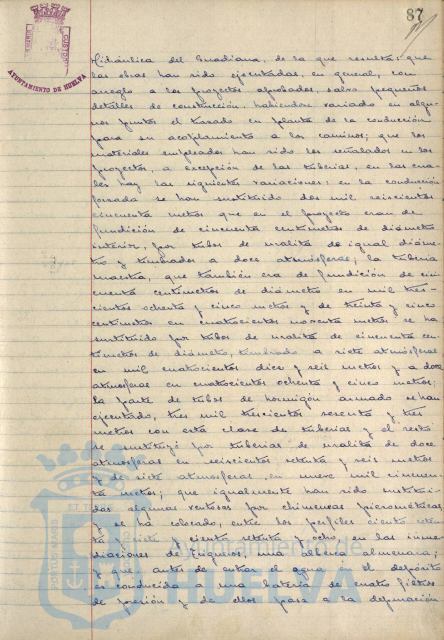 87
AYUNTAMIENTO DE HUELVA
Hidráulica del Guadiana, de la que resulta: que
las obras han sido ejecutadas, en general, con
arreglo a los proyectos aprobados, salvo pequeños
detalles de construcción, habiéndose variado en algu-
nos puntos el trazado en planta de la conducción
para su acoplamiento a los caminos; que los
materiales empleados han sido los señalados en los
proyectos, a excepción de las tuberías, en las cua-
les hay las siguientes variaciones: en la conducción
forzada se han sustituido dos mil seiscientos
cincuenta metros que en el proyecto eran de
fundición de cincuenta centímetros de diámetro
interior, por tubos de uralita de igual diáme-
tro y timbrados a doce atmósferas; la tubería
maestra, que también era de fundición de cin-
cuenta centímetros de diámetro en mil tres-
cientos ochenta y cinco metros y de treinta y cinco
centímetros en cuatrocientos noventa metros se ha
sustituido por tubos de uralita de cincuenta cen-
tímetros de diámetro, timbrado a siete atmósferas
en mil cuatrocientos diez y seis metros y a doce
atmósferas en cuatrocientos ochenta y cinco metros;
la parte de tubos de hormigón armado se han
ejecutado, tres mil trescientos sesenta y tres
metros con esta clase de tuberías y el resto
se sustituyó por tuberías de uralita de doce
atmósferas en seiscientos setenta y seis metros
y de siete atmósferas en nueve mil cincuen-
ta metros; que igualmente han sido sustitui-
das algunas ventosas por chimeneas piezométricas
y se ha colocado, entre los perfiles ciento seten-
ta y siete y ciento setenta y ocho, en las inme-
diaciones de Trigueros, una alberca almenara;
y que, antes de entrar el agua en el depósito
es conducida a una batería de cuatro filtros
de presión y de ellos pasa a la depuración
PORTUS MARIS
Ayuntamiento de
HUELVA